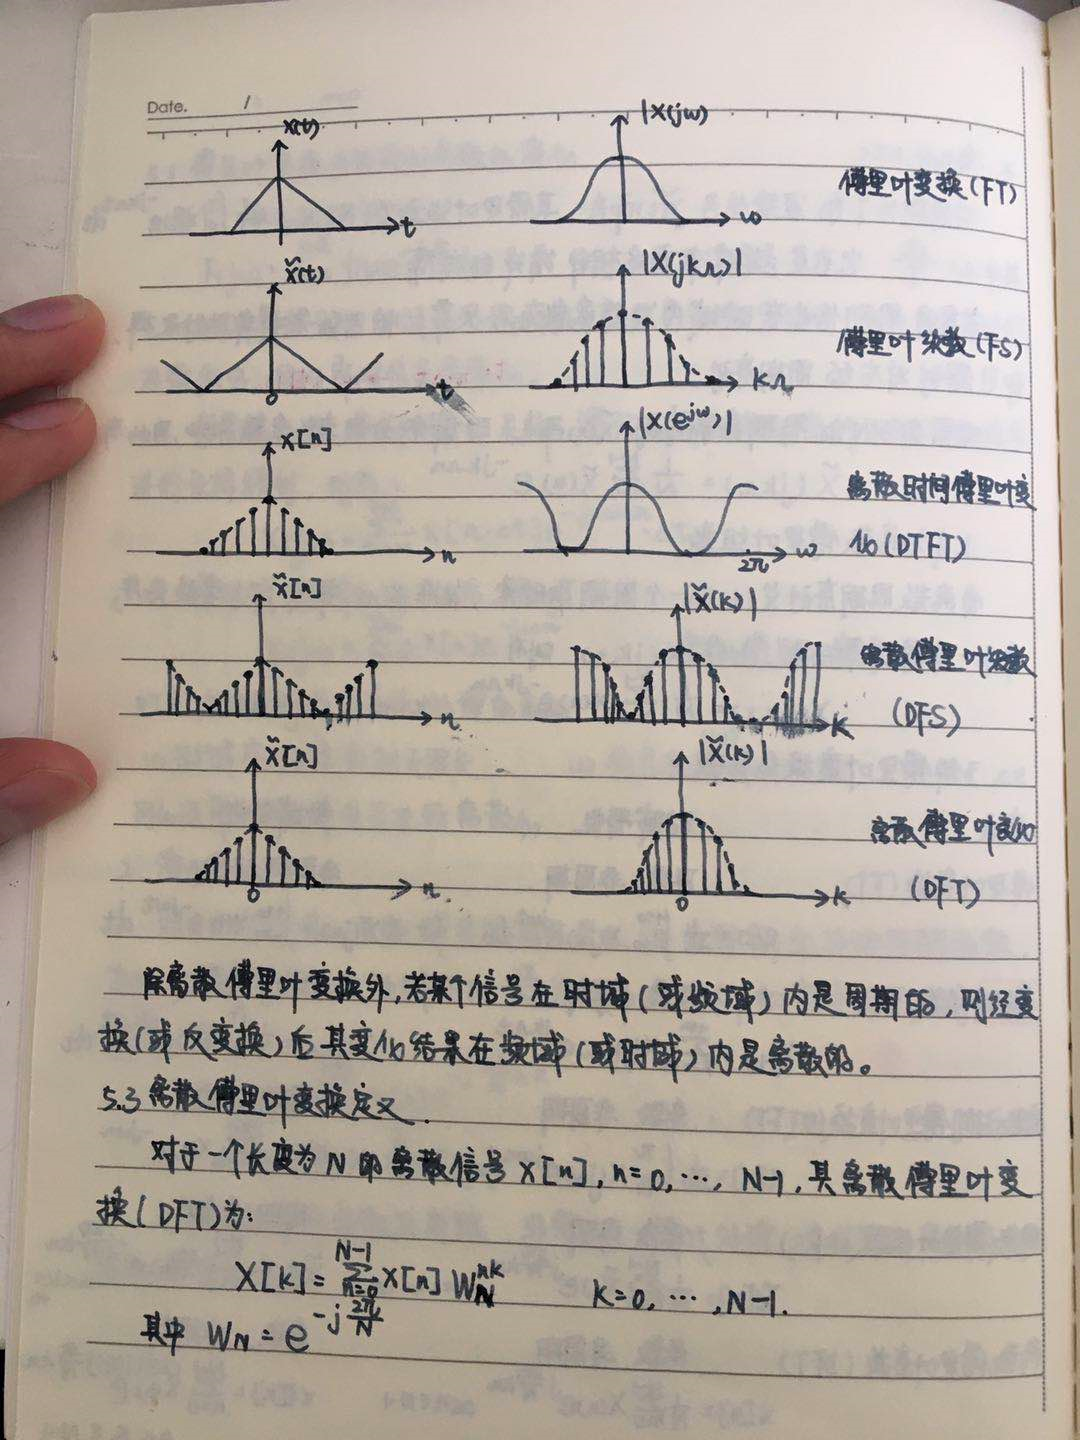 Date. /
x(t)
|X(jω)
t
ω
傅里叶变换(FT)
x̃(t)
|X(jkΩ)|
0
t
kΩ
傅里叶级数(FS)
x[n]
|X(e^{jω})|
n
2π
ω
离散时间傅里叶变
化(DTFT)
x̃[n]
|X̃(k)|
n
k
离散傅里叶级数
(DFS)
x̃[n]
|X̃(k)|
0
n
0
k
离散傅里叶变化
(DFT)
除离散傅里叶变换外,若某个信号在时域(或频域)内是周期的,则经变
换(或反变换)后其变化结果在频域(或时域)内是离散的。
5.3 离散傅里叶变换定义.
对于一个长度为N的离散信号x[n], n=0,…, N-1,其离散傅里叶变
换(DFT)为:
X[k]=∑_{n=0}^{N-1} x[n] W_N^{nk} k=0,…,N-1.
其中 W_N = e^{-j\frac{2π}{N}}